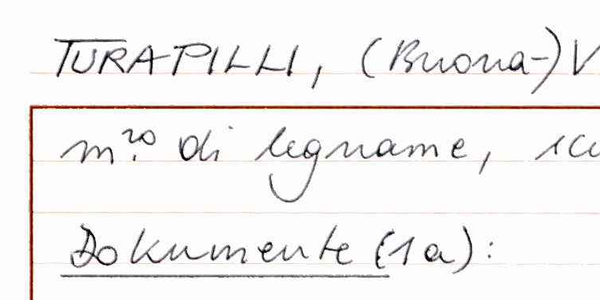 TURAPILLI, (Buona-)V
m.ro di legname,
Dokumente (1a):